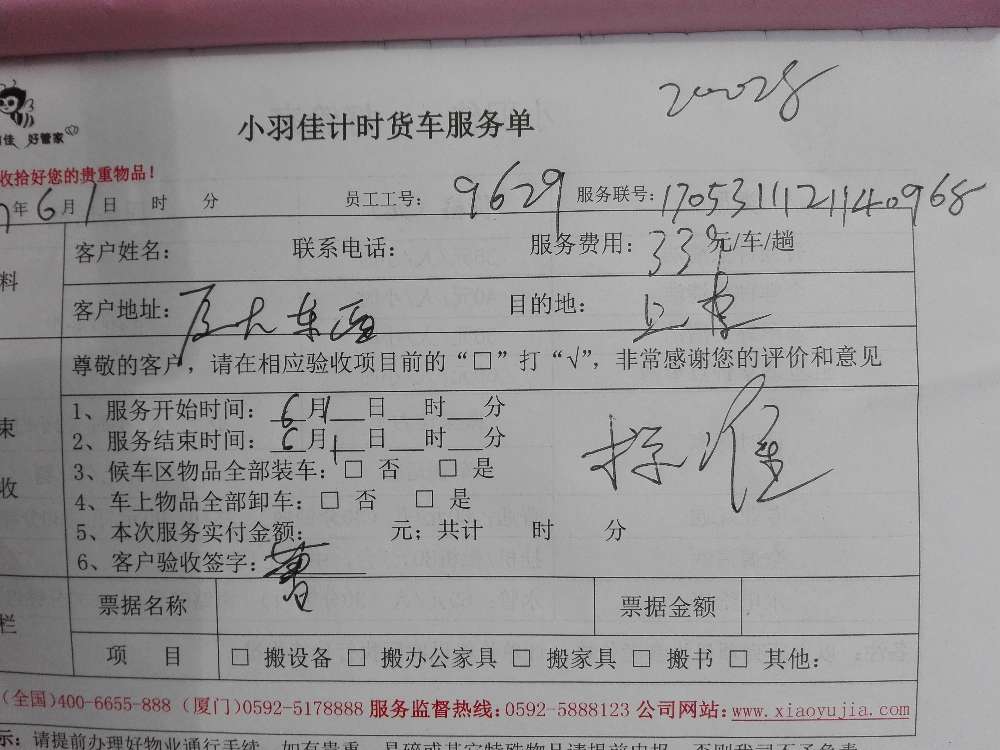 20028
小羽佳计时货车服务单
佳 好管家
收拾好您的贵重物品！
年6月1日 时 分 员工工号：9629 服务联号：1705311121140968
料
客户姓名： 联系电话： 服务费用：339元/车/趟
客户地址：厦大东 目的地：
尊敬的客户，请在相应验收项目前的“□”打“√”，非常感谢您的评价和意见
束
收
1、服务开始时间：6月1日 时 分
2、服务结束时间：6月1日 时 分
3、候车区物品全部装车：□ 否 □ 是
4、车上物品全部卸车：□ 否 □ 是
5、本次服务实付金额： 元；共计 时 分
6、客户验收签字：
栏
票据名称 票据金额
项 目 □ 搬设备 □ 搬办公家具 □ 搬家具 □ 搬书 □ 其他：
(全国)400-6655-888 (厦门)0592-5178888 服务监督热线：0592-5888123 公司网站：www.xiaoyujia.com
示：请提前办理好物业通行手续